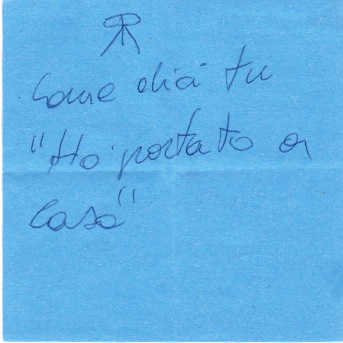 Come dici tu
"Ho portato a
casa"